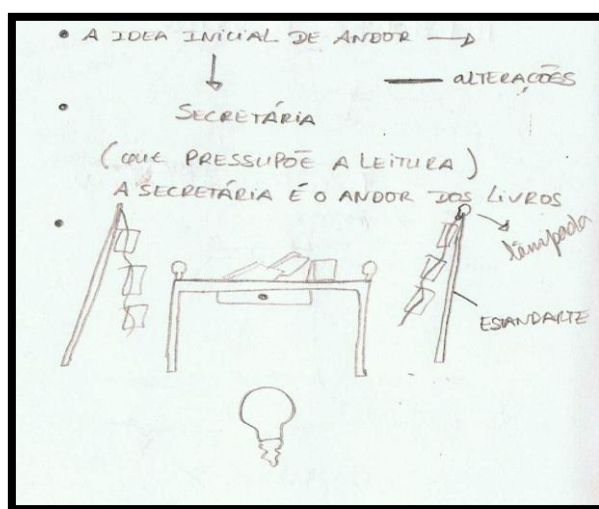 • A IDEA INICIAL DE ANDOR →
— ALTERAÇÕES
• SECRETÁRIA
(QUE PRESSUPÕE A LEITURA)
A SECRETÁRIA É O ANDOR DOS LIVROS
•
lâmpada
ESTANDARTE